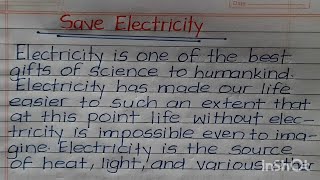 Save Electricity
Electricity is one of the best
gifts of science to humankind.
Electricity has made our life
easier to such an extent that
at this point life without elec-
tricity is impossible even to ima-
gine. Electricity is the source
of heat, light, and various
InShot